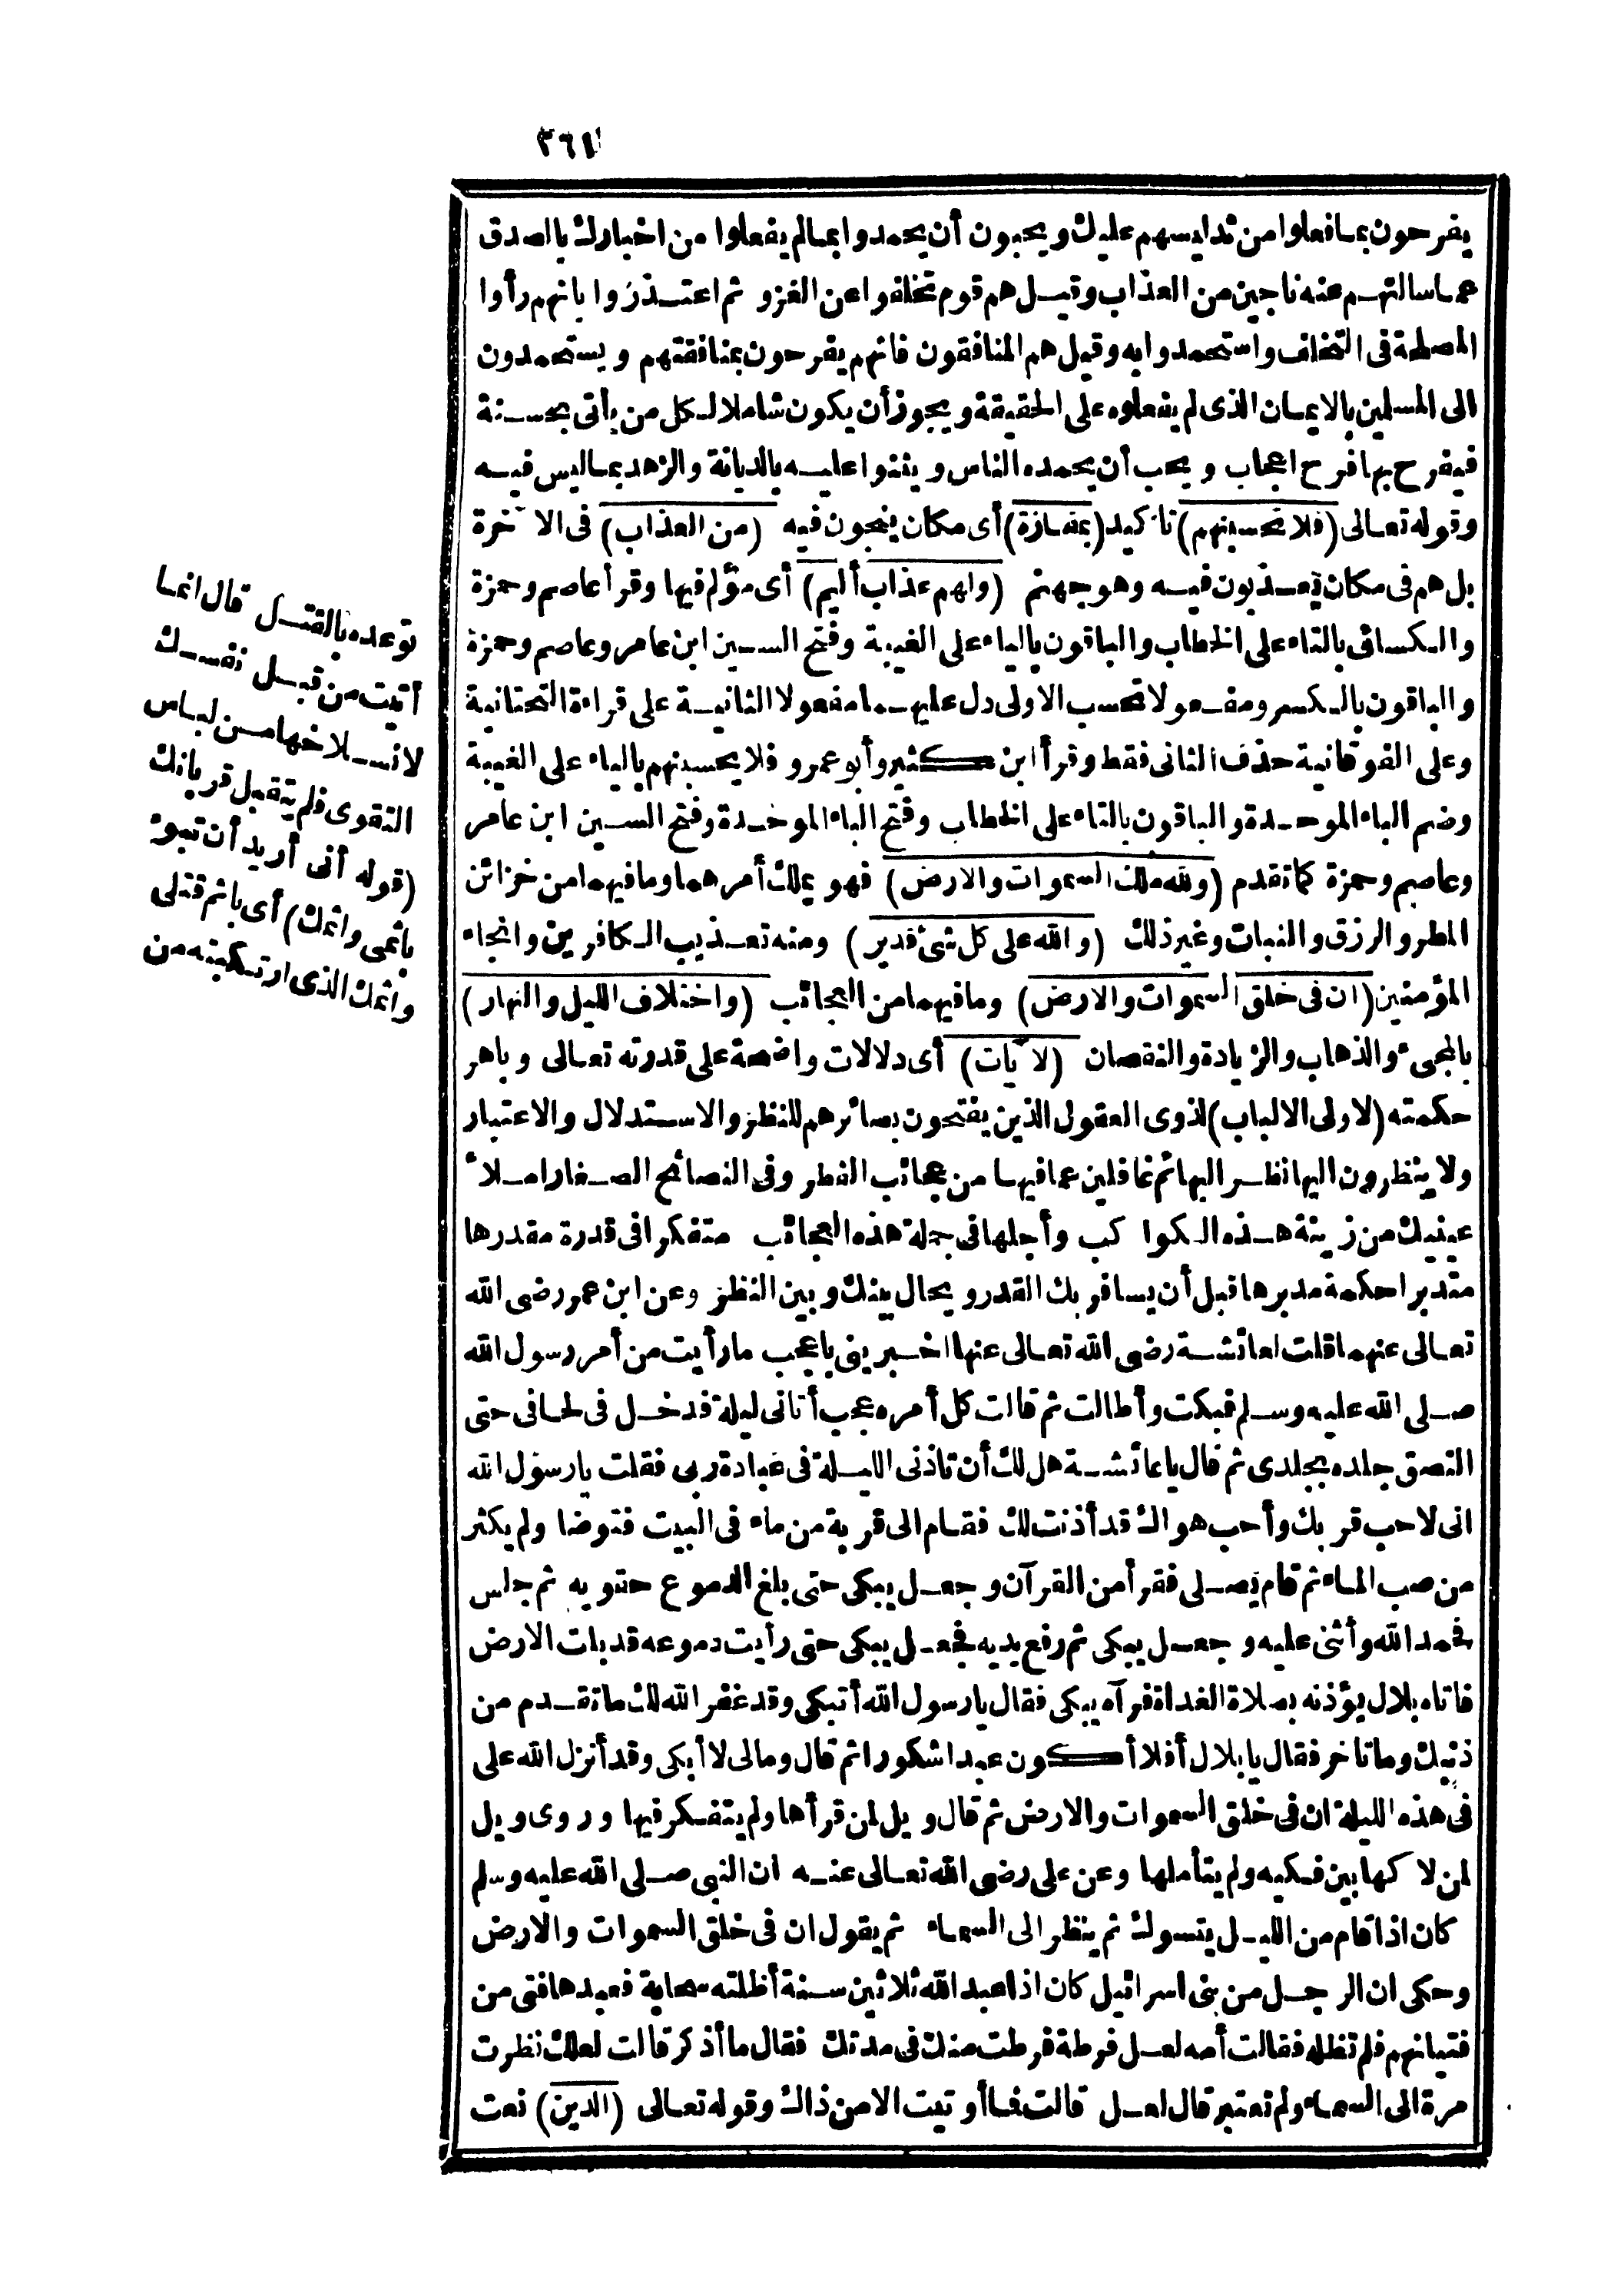 ٣٦١
يفرحون بما فعلوا من تدليسهم عليك ويحبون أن يحمدوا بما لم يفعلوا من اخبارك بالصدق
عما سالتهم عنه ناجين من العذاب وقيل هم قوم تخلفوا عن الغزو ثم اعتذروا بانهم رأوا
المصلحة فى التخلف واستحمدوا به وقيل هم المنافقون فانهم يفرحون بمنافقتهم ويستحمدون
الى المسلمين بالايمان الذى لم يفعلوه على الحقيقة ويجوز أن يكون شاملا لكل من يأتى بحسنة
فيفرح بها فرح اعجاب ويحب أن يحمده الناس ويثنوا عليه بالديانة والزهد بما ليس فيه
وقوله تعالى (فلا تحسبنهم) تاكيد (بمفازة) أى مكان ينجون فيه (من العذاب) فى الآخرة
بل هم فى مكان يعذبون فيه وهو جهنم (ولهم عذاب أليم) أى مؤلم فيها وقرأ عاصم وحمزة
والكسائى بالتاء على الخطاب والباقون بالياء على الغيبة وفتح السين ابن عامر وعاصم وحمزة
والباقون بالكسر ومفعولا تحسب الاولى دل عليهما مفعولا الثانية على قراءة التحتانية
وعلى الفوقانية حذف الثانى فقط وقرأ ابن كثير وأبو عمرو فلا يحسبنهم بالياء على الغيبة
وضم الباء الموحدة والباقون بالتاء على الخطاب وفتح الباء الموحدة وفتح السين ابن عامر
وعاصم وحمزة كما تقدم (ولله ملك السموات والارض) فهو يملك أمرهما وما فيهما من خزائن
المطر والرزق والنبات وغير ذلك (والله على كل شئ قدير) ومنه تعذيب الكافرين وانجاء
المؤمنين (ان فى خلق السموات والارض) وما فيهما من العجائب (واختلاف الليل والنهار)
بالمجىء والذهاب والزيادة والنقصان (لآيات) أى دلالات واضحة على قدرته تعالى وباهر
حكمته (لاولى الالباب) لذوى العقول الذين يفتحون بصائرهم للنظر والاستدلال والاعتبار
ولا ينظرون اليها نظر البهائم غافلين عما فيها من عجائب الفطر وفى النصائح الصغار املأ
عينيك من زينة هذه الكواكب وأجلها فى جملة هذه العجائب متفكرا فى قدرة مقدرها
متدبرا حكمة مدبرها قبل أن يسافر بك القدر ويحال بينك وبين النظر وعن ابن عمر رضى الله
تعالى عنهما قلت لعائشة رضى الله تعالى عنها اخبرينى باعجب ما رأيت من أمر رسول الله
صلى الله عليه وسلم فبكت وأطالت ثم قالت كل أمره عجب أتانى ليلة فدخل فى لحافى حتى
التصق جلده بجلدى ثم قال يا عائشة هل لك أن تاذنى الليلة فى عبادة ربى فقلت يا رسول الله
انى لاحب قربك وأحب هواك قد أذنت لك فقام الى قربة من ماء فى البيت فتوضا ولم يكثر
من صب الماء ثم قام يصلى فقرأ من القرآن وجعل يبكى حتى بلغ الدموع حقويه ثم جلس
فحمد الله وأثنى عليه وجعل يبكى ثم رفع يديه فجعل يبكى حتى رأيت دموعه قد بلت الارض
فاتاه بلال يؤذنه بصلاة الغداة فرآه يبكى فقال يا رسول الله أتبكى وقد غفر الله لك ما تقدم من
ذنبك وما تاخر فقال يا بلال أفلا أكون عبدا شكورا ثم قال ومالى لا أبكى وقد أنزل الله على
فى هذه الليلة ان فى خلق السموات والارض ثم قال ويل لمن قرأها ولم يتفكر فيها وروى ويل
لمن لاكها بين فكيه ولم يتأملها وعن على رضى الله تعالى عنه ان النبى صلى الله عليه وسلم
كان اذا قام من الليل يتسوك ثم ينظر الى السماء ثم يقول ان فى خلق السموات والارض
وحكى ان الرجل من بنى اسرائيل كان اذا عبد الله ثلاثين سنة أظلته سحابة فعبدها فتى من
فتيانهم فلم تظله فقالت أمه لعل فرطة فرطت منك فى مدتك فقال ما أذكر قالت لعلك نظرت
مرة الى السماء ولم تعتبر قال لعل قالت فما أوتيت الا من ذاك وقوله تعالى (الذين) نعت
توعده بالقتل قال انما
أتيت من قبل نفسك
لانسلاخها من لباس
التقوى فلم يتقبل قربانك
(قوله أنى أريد أن تبوء
باثمى واثمك) أى باثم قتلى
واثمك الذى ارتكبته من